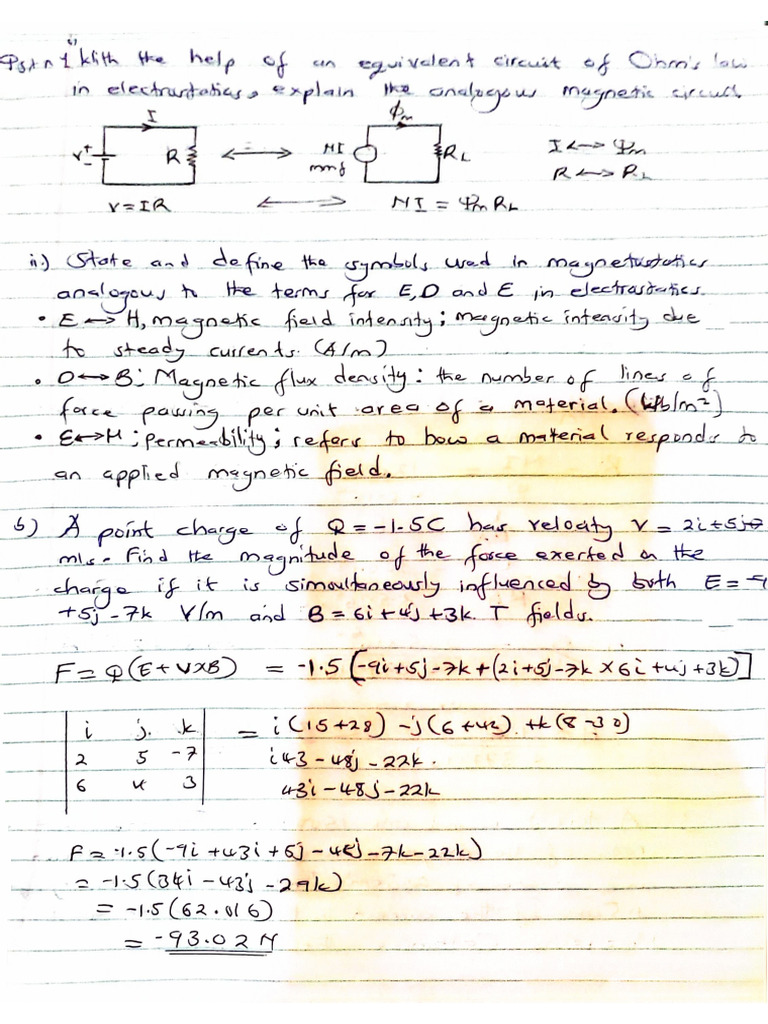 i)
Qstn 1 With the help of an equivalent circuit of Ohm's law
in electrostatics, explain the analogous magnetic circuit
I
V + -
R
NI
mmf
Φm
RL
I ↔ Ψm
R ↔ RL
V = IR ↔ NI = Ψm RL
ii.) State and define the symbols used in magnetostatics
analogous to the terms for E, D and Ɛ in electrostatics.
• E ↔ H, magnetic field intensity; magnetic intensity due
to steady currents. (A/m)
• D ↔ B: Magnetic flux density: the number of lines of
force passing per unit area of a material. (Wb/m²)
• Ɛ ↔ μ; permeability; refers to how a material responds to
an applied magnetic field.
b) A point charge of Q = -1.5C has velocity V = 2i + 5j
m/s. Find the magnitude of the force exerted on the
charge if it is simoultaneously influenced by both E = -9
+5j - 7k V/m and B = 6i + 4j + 3k. T fields.
F = Q(E + V×B) = -1.5[-9i + 5j - 7k + (2i + 5j - 7k × 6i + 4j + 3k)]
i j k = i(15 + 28) - j(6 + 42) + k(8 - 30)
2 5 -7 i43 - 48j - 22k.
6 4 3 43i - 48j - 22k
F = -1.5(-9i + 43i + 5j - 48j - 7k - 22k)
= -1.5(34i - 43j - 29k)
= -1.5(62.016)
= -93.02 N